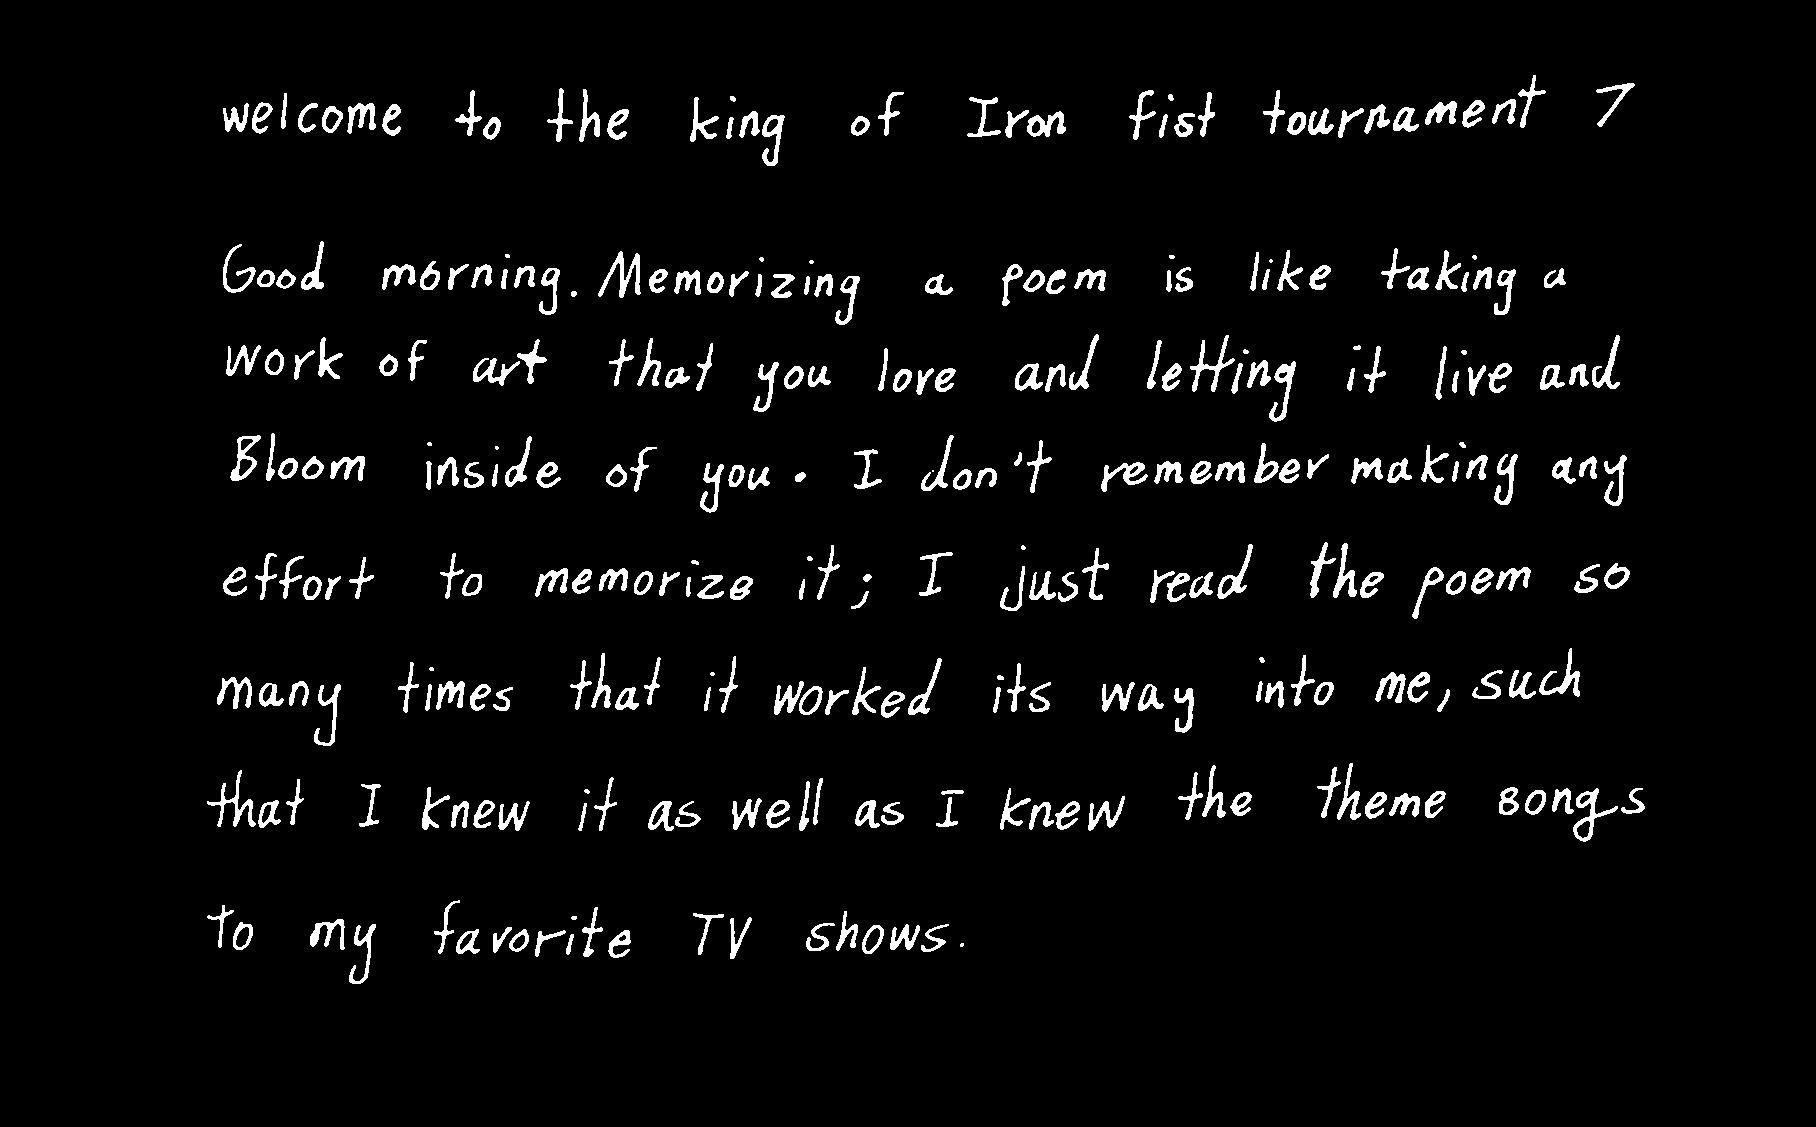 welcome to the king of Iron fist tournament 7
Good morning. Memorizing a poem is like taking a
work of art that you love and letting it live and
Bloom inside of you. I don't remember making any
effort to memorize it; I just read the poem so
many times that it worked its way into me, such
that I knew it as well as I knew the theme songs
to my favorite TV shows.